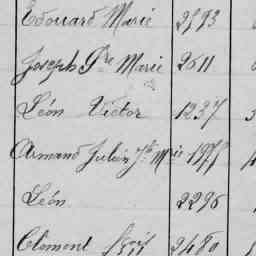 Edouard Marie 2593
Joseph Pre Marie 2611
Léon Victor 1237
Armand Julien Jh Mie 1975
Léon 2296
Clément 2480